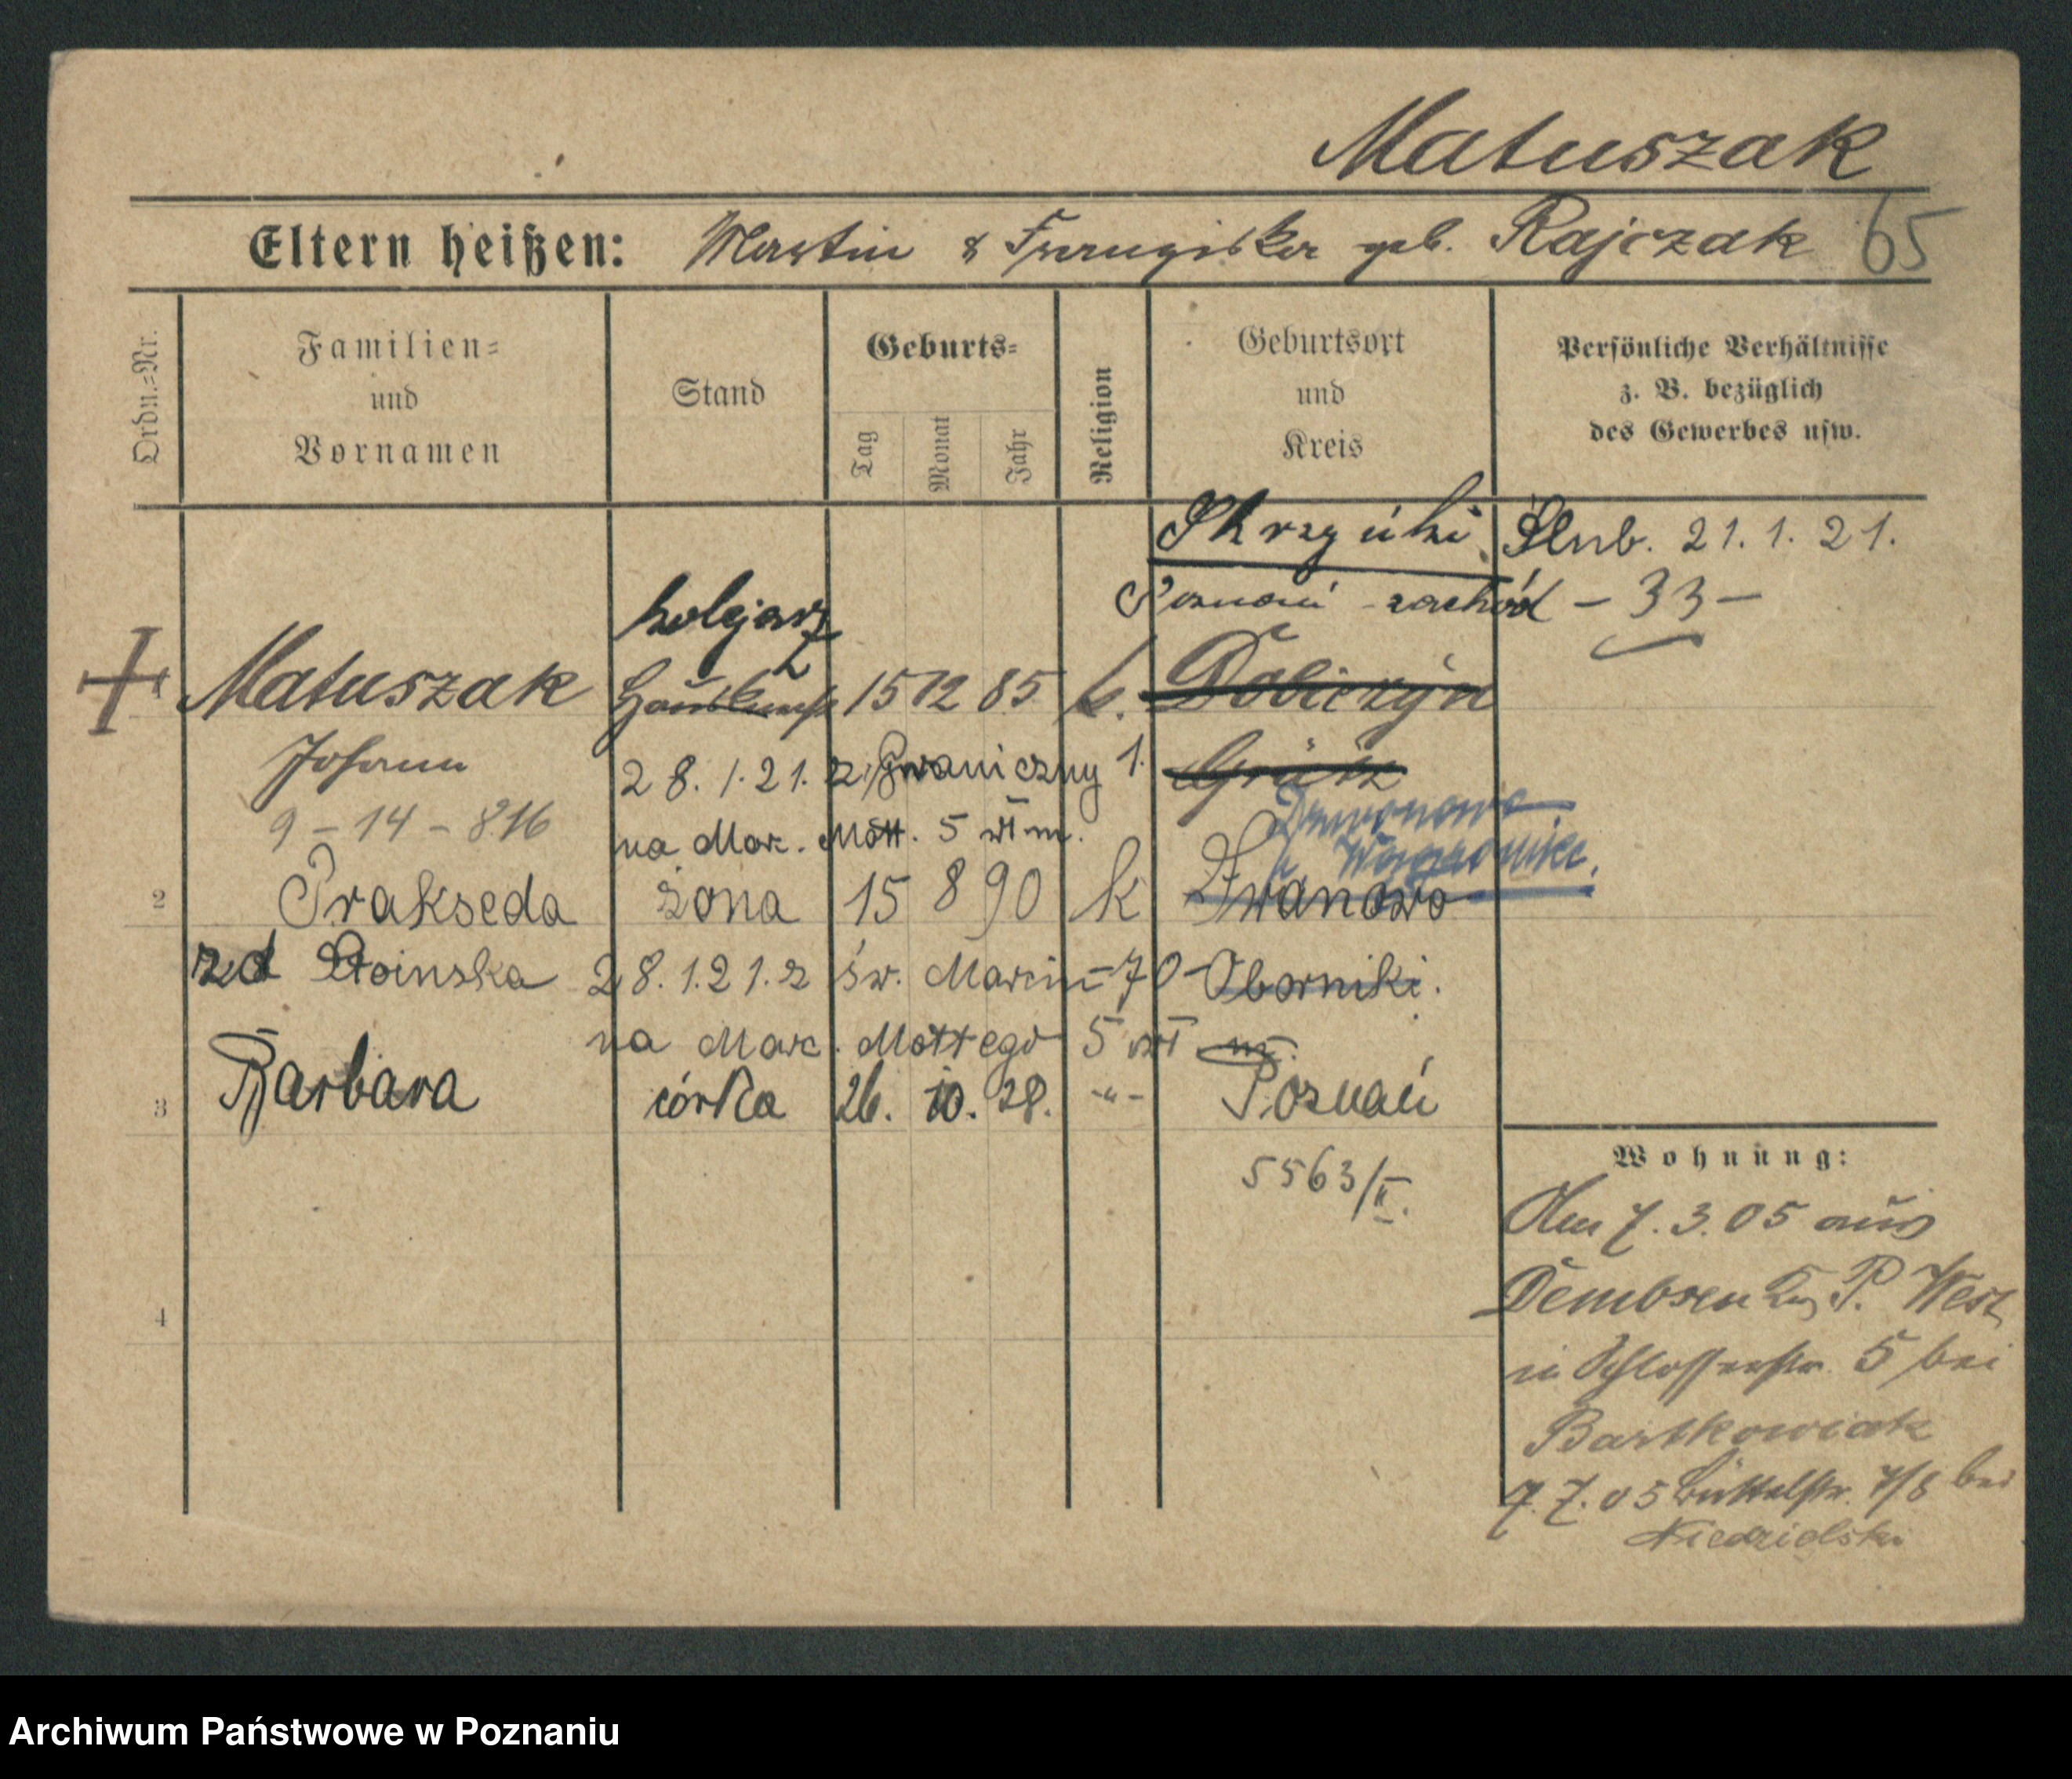 Matuszak
Eltern heißen: Martin & Franziska geb. Rajczak 65
Ordn.=Nr.
Familien=
und
Vornamen
Stand
Geburts=
Tag
Monat
Jahr
Religion
Geburtsort
und
Kreis
Persönliche Verhältnisse
z. B. bezüglich
des Gewerbes usw.
Skrzynki Ślub. 21. 1. 21.
Poznań - zachód - 33 -
kolejarz
Matuszak 15 12 85 k. Dobiezyn
Johann 28. 1. 21. z Graniczny 1. Grätz
9 - 14 - 816 na Marc. Mott. 5 wł m.
2 Prakseda żona 15 8 90 k Iwanowo
zd 28. 1. 21. z św. Marcin 70 Oborniki.
na Marc. Mottego 5 wł m.
3 Barbara córka 26. 10. 28. -"- Poznań
5563/II.
4
Wohnung:
Am 7. 3. 05 aus
Dembsen P. West
in Schlosserstr. 5 bei
Bartkowiak
7. 7. 05 Büttelstr. 7/8 bei
Niedzielski
Archiwum Państwowe w Poznaniu